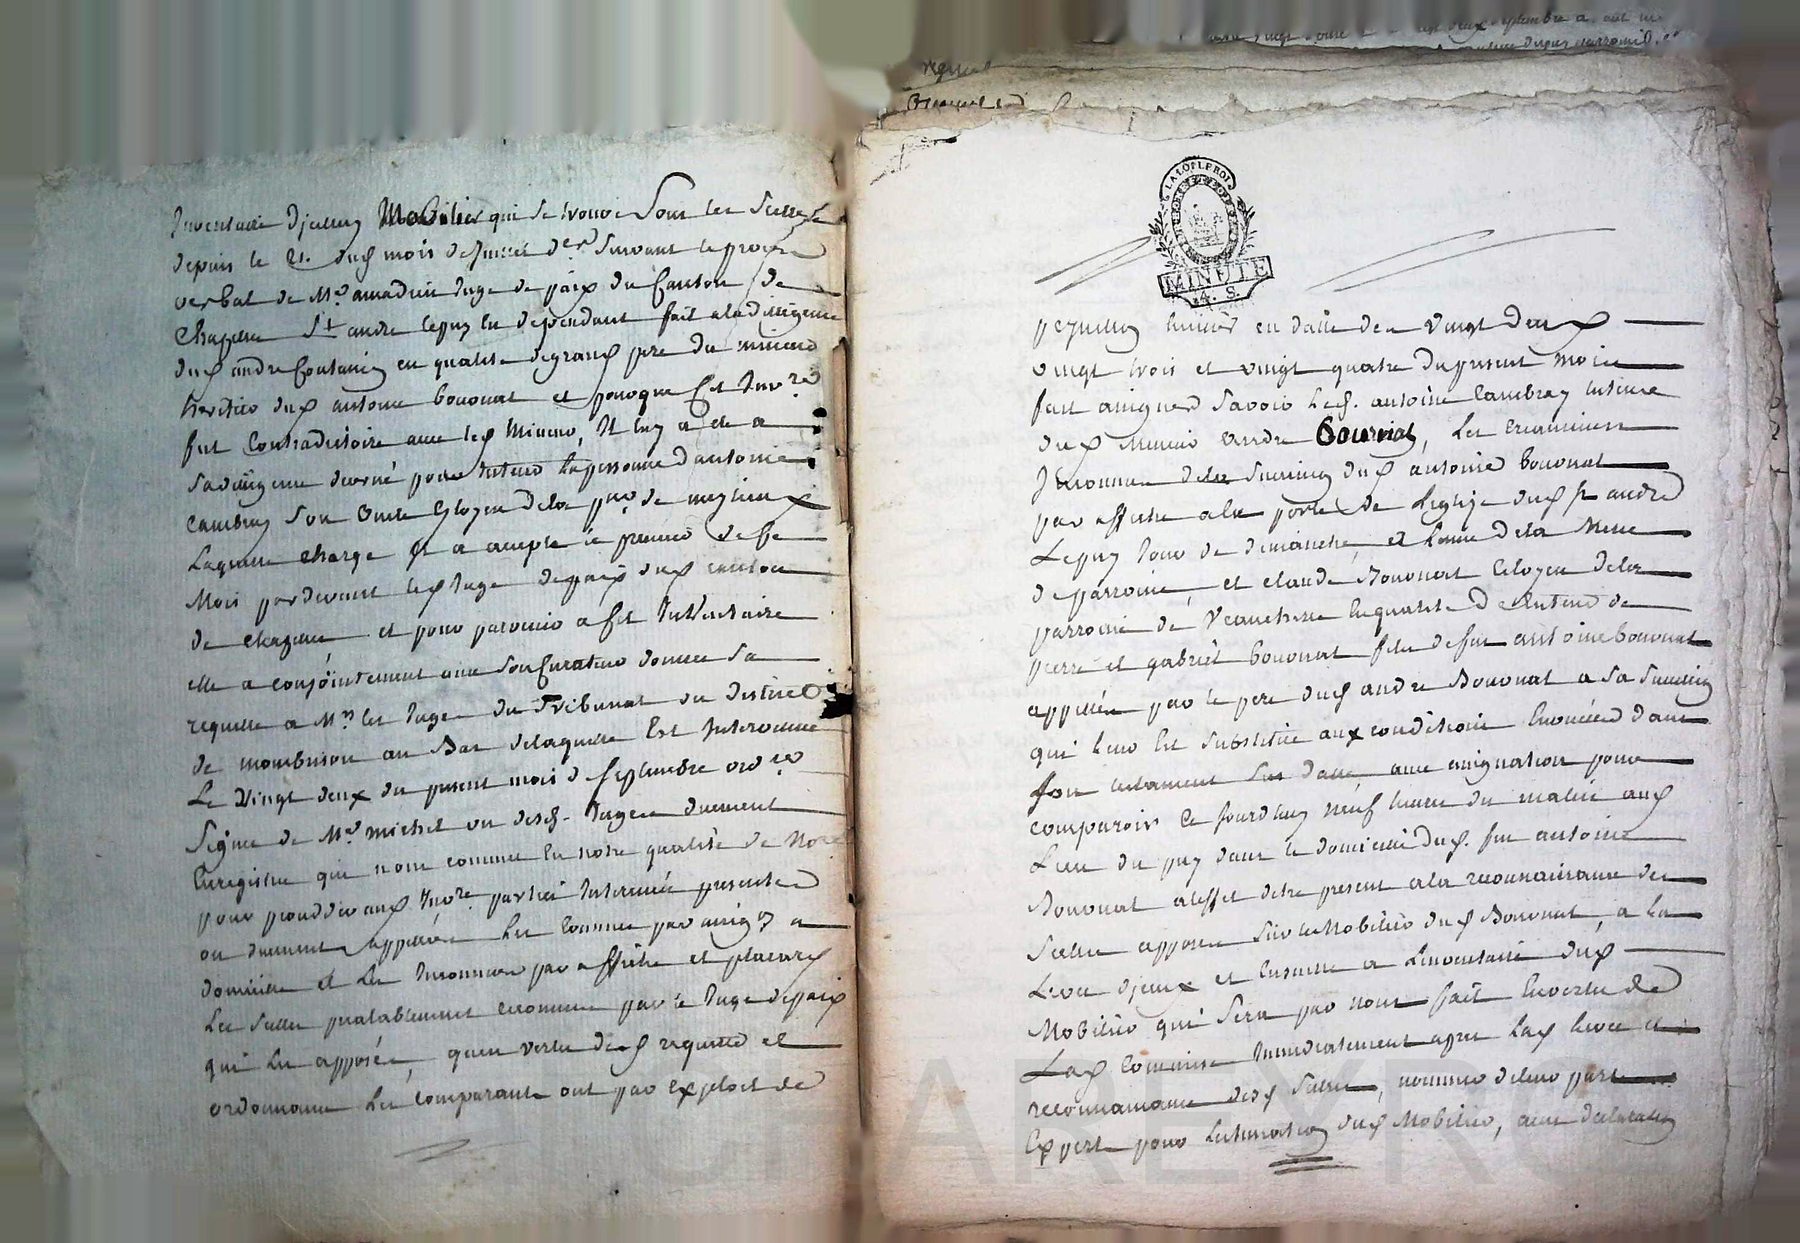 Inventaire d'jcelluy Mobilier qui se trouve sous les scellés
depuis le 21. dud mois de juillet der suivant le procès
verbal de Mr amadieu juge de paix du Canton de
Chazelle St andre lepuy en dependant fait a la diligence
dud andre en qualité de grand pere du mineur
heritier dud antoine bouvnat et pour que Cet Invre
fut Contradictoire avec led Mineur, Il luy a ete a
sa diligence decerné pour tuteur la personne d'antoine
Cambray son oncle Citoyen de la par. de meylieux
Laquelle Charge il a accepté le premier de Ce
Mois pardevant led Juge de paix dud canton
de Chazelle, et pour parvenir a Cet Inventaire
elle a conjointement avec son Curateur donnée sa
requette a Mrs les Juges du Tribunal du district
de montbrison au Bas de laquelle Est Intervenue
Le vingt deux du present mois de septembre ordre
signée de Mr michel un desd. Juges duement
Enregistrée qui nous commet En notre qualité de Nore
pour proceder aud Invre parties Interessées presentes
ou duement appellées Les Connues par assign a
domicile et Les Inconnues par affiche et placard
Les scellés prealablement reconnus par le Juge de paix
qui Les a apposés, qu'en vertu desd requette et
ordonnance Les Comparants ont par Exploit de
LA LOI LE ROI
MINUTE
4. S.
huissier en datte des vingt deux
vingt trois et vingt quatre du present mois
fait assigner savoir Led. antoine Cambray tuteur
dud Mineur andre Bouvnat, Les Creanciers
Inconnus de la succession dud antoine bouvnat
par affiche a la porte de L'eglise dud St andré
Lepuy Jour de dimanche, et Issue de la Messe
de parroisse, et claude Bouvnat Citoyen de la
parroisse de Veauchette En qualité de tuteur de
pierre et gabriel bouvnat fils de feu antoine bouvnat
appellés par le pere dud andre Bouvnat a sa succession
qui leur Est substituée aux conditions Enoncées dans
son testament sus datté, avec assignation pour
comparoir Ce Jourd'huy neuf heures du matin aud
Lieu du puy dans le domicile dud. feu antoine
Bouvnat a l'effet d'etre present a la reconnaissance des
scellés apposés sur le Mobilier dud Bouvnat, a La
Levée d'jceux et Ensuitte a L'inventaire dud
Mobilier qui sera par nous fait En vertu de
Lad Commission Immediatement apres Lad Levée et
reconnaissance desd scellés, nommer de leur part
Expert pour L'estimation dud Mobilier, avec declaration